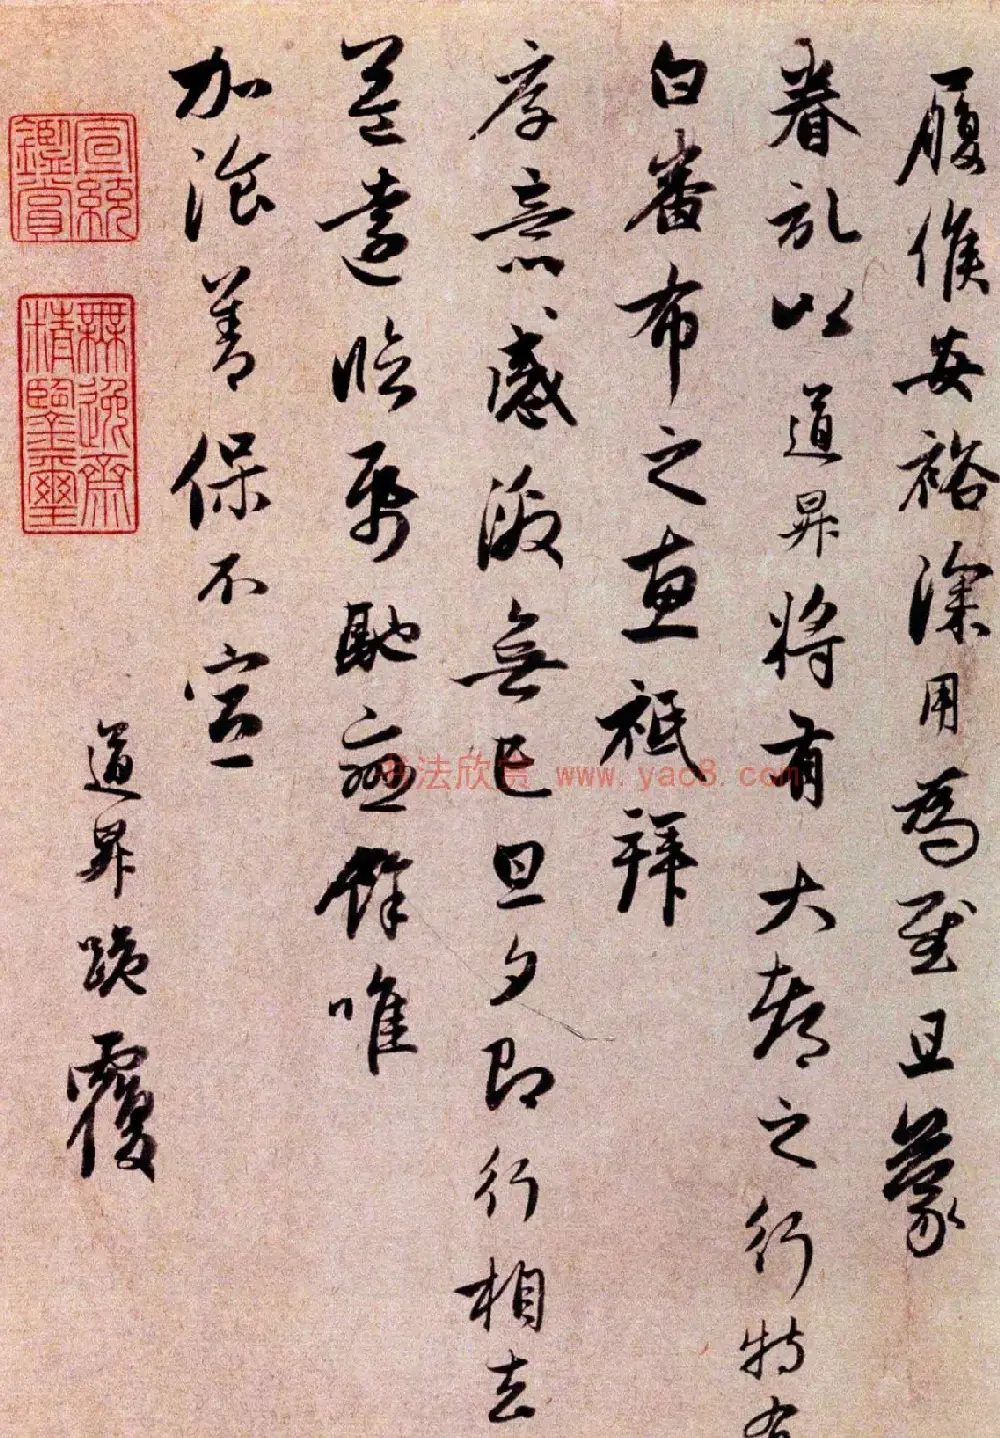 履候安裕深用為慰且蒙
眷記以道昇將有大都之行特有
白番布之惠祗拜
厚意感激無已旦夕即行相去
益遠臨紙馳戀餘唯
加湌善保不宣
道昇跪覆
宣統鑑賞
無逸齋精鑒璽
书法欣赏 www.yac8.com